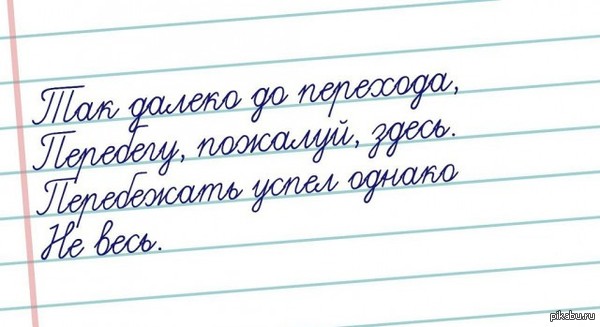 Так далеко до перехода,
Перебегу, пожалуй, здесь.
Перебежать успел однако
Не весь.
pikabu.ru